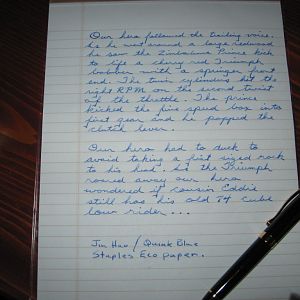 Our hero followed the trailing voice.
As he went around a large redwood
he saw the Zimbabwe Prince kick
to life a cherry red Triumph
bobber with a springer front
end. The twin cylinders hit the
right RPM on the second twist
of the throttle. The prince
kicked the five speed box into
first gear and he popped the
clutch lever.
Our hero had to duck to
avoid taking a fist sized rock
to his head. As the Triumph
roared away our hero
wondered if cousin Eddie
still has his old 74 cube
low rider...
Jin Hao / Quink Blue
Staples Eco paper.